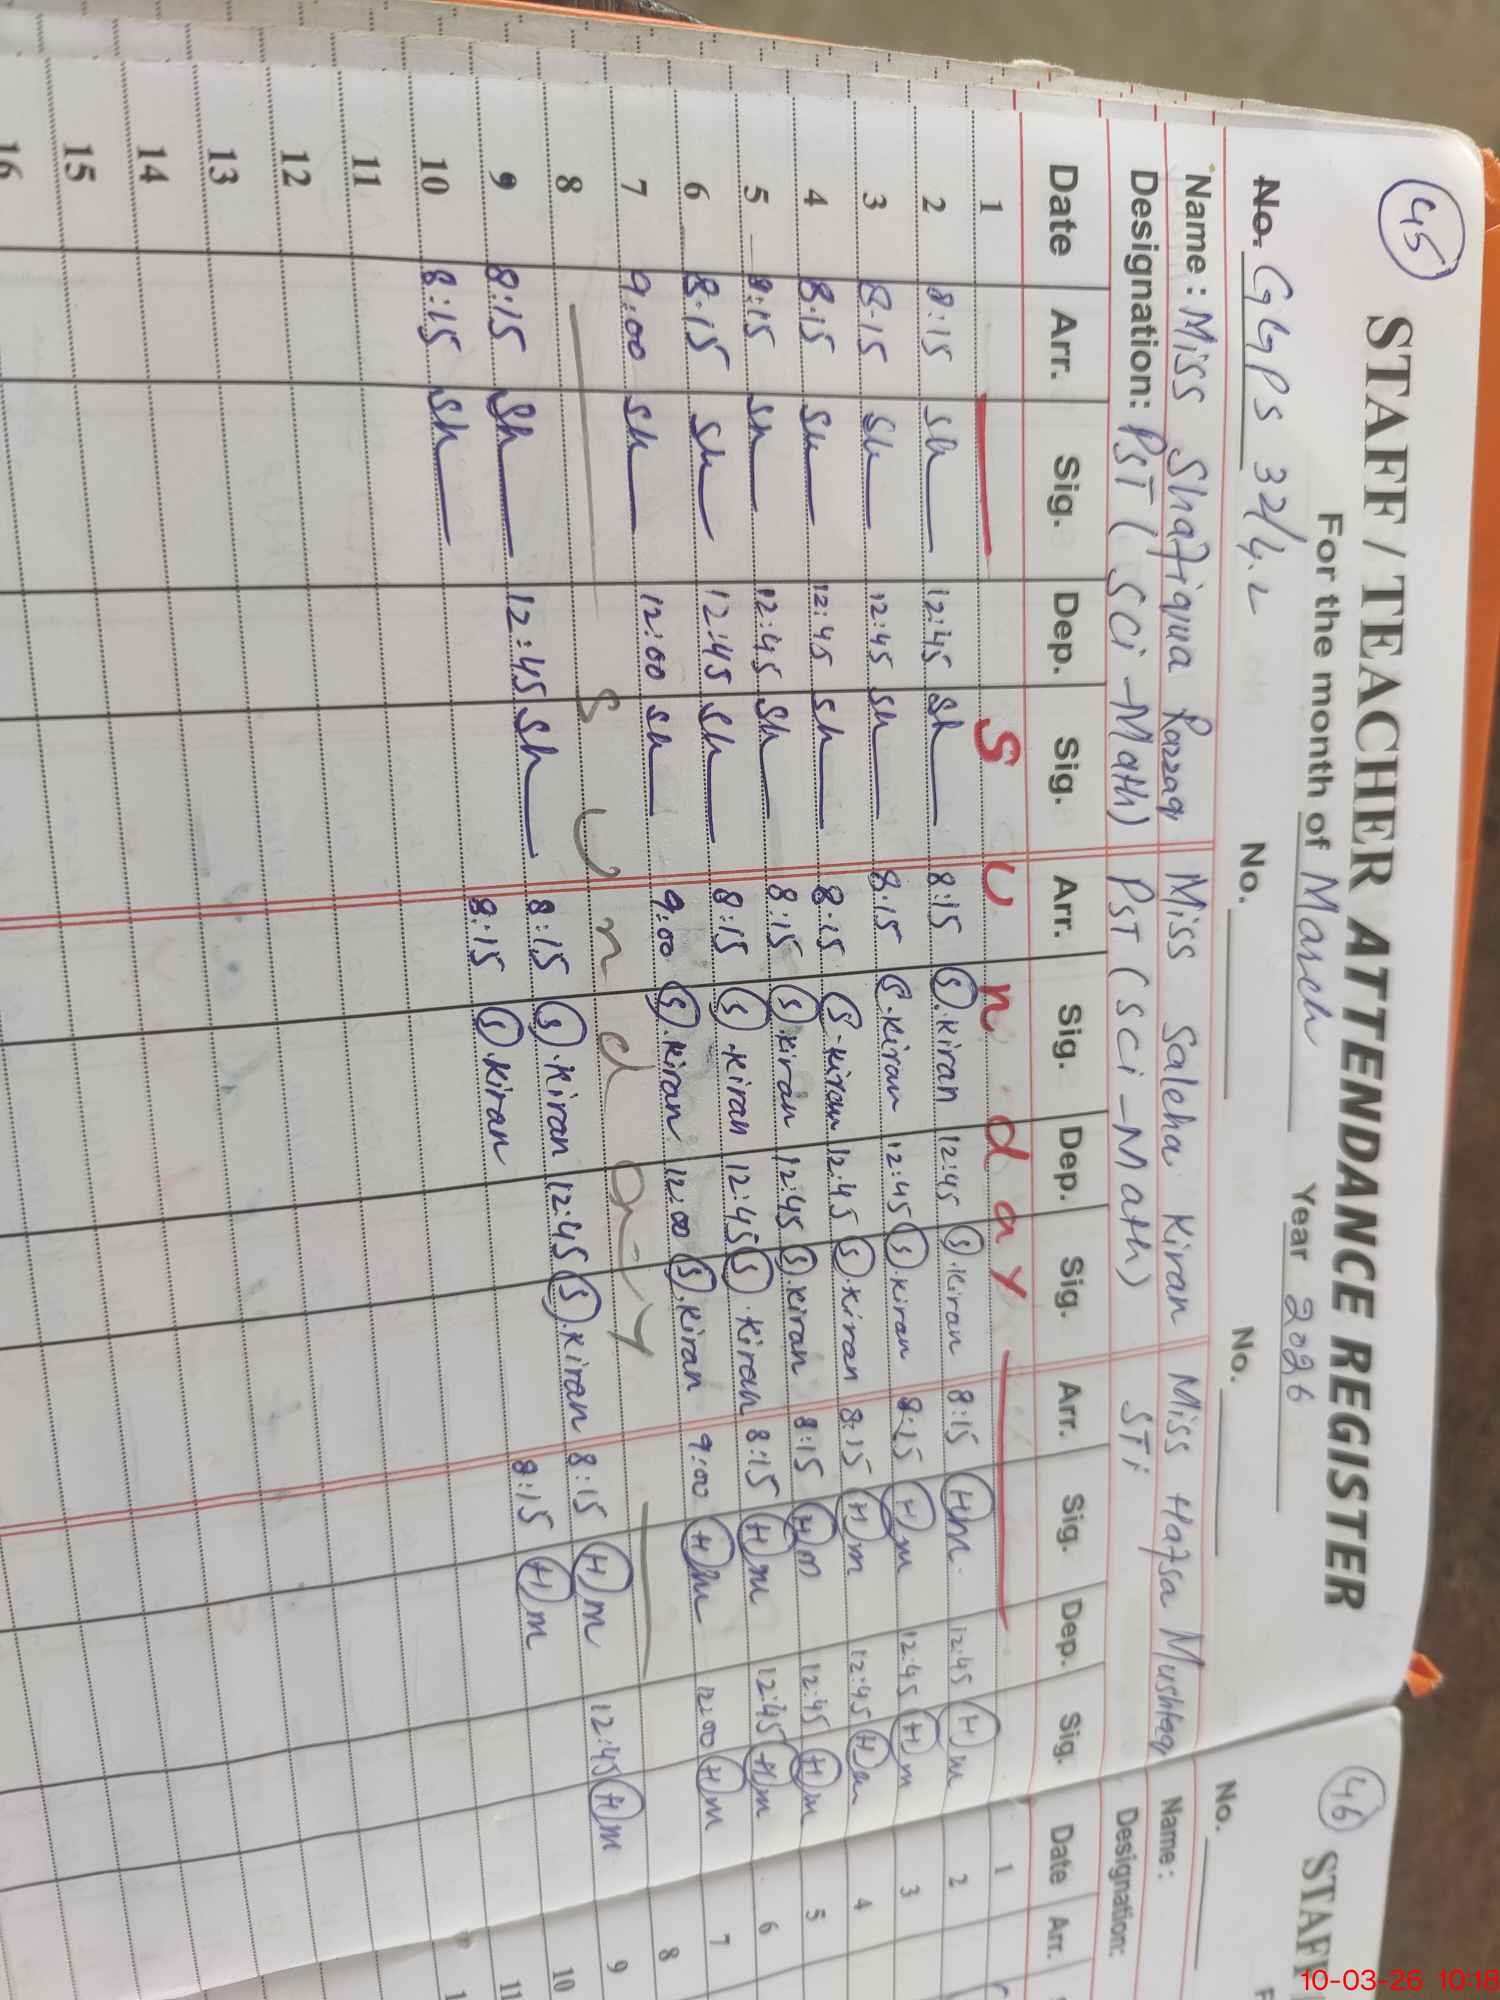 45
STAFF / TEACHER ATTENDANCE REGISTER
For the month of March Year 2026
No. GGPS 32/4.L No. No.
Name : Miss Shafiqua Razzaq Miss Saleha Kiran Miss Hafsa Mushtaq
Designation: PST ( Sci - Math) PST ( Sci - Math) STi
Date Arr. Sig. Dep. Sig. Arr. Sig. Dep. Sig. Arr. Sig. Dep. Sig.
1 Sunday
2 8:15 Sh 12:45 Sh 8:15 S.Kiran 12:45 S.Kiran 8:15 Hm 12:45 Hm
3 8:15 Sh 12:45 Sh 8:15 S.Kiran 12:45 S.Kiran 8:15 Hm 12:45 Hm
4 8:15 Sh 12:45 Sh 8:15 S.Kiran 12:45 S.Kiran 8:15 Hm 12:45 Hm
5 8:15 Sh 12:45 Sh 8:15 S.Kiran 12:45 S.Kiran 8:15 Hm 12:45 Hm
6 8:15 Sh 12:45 Sh 8:15 S.Kiran 12:45 S.Kiran 8:15 Hm 12:45 Hm
7 9:00 Sh 12:00 Sh 9:00 S.Kiran 12:00 S.Kiran 9:00 Hm 12:00 Hm
8 Sunday
9 8:15 Sh 12:45 Sh 8:15 S.Kiran 12:45 S.Kiran 8:15 Hm 12:45 Hm
10 8:15 Sh 8:15 S.Kiran 8:15 Hm
11
12
13
14
15
16
46
STAF
No.
Name :
Designation:
Date Arr.
1
2
3
4
5
6
7
8
9
10
11
10-03-26 10:18